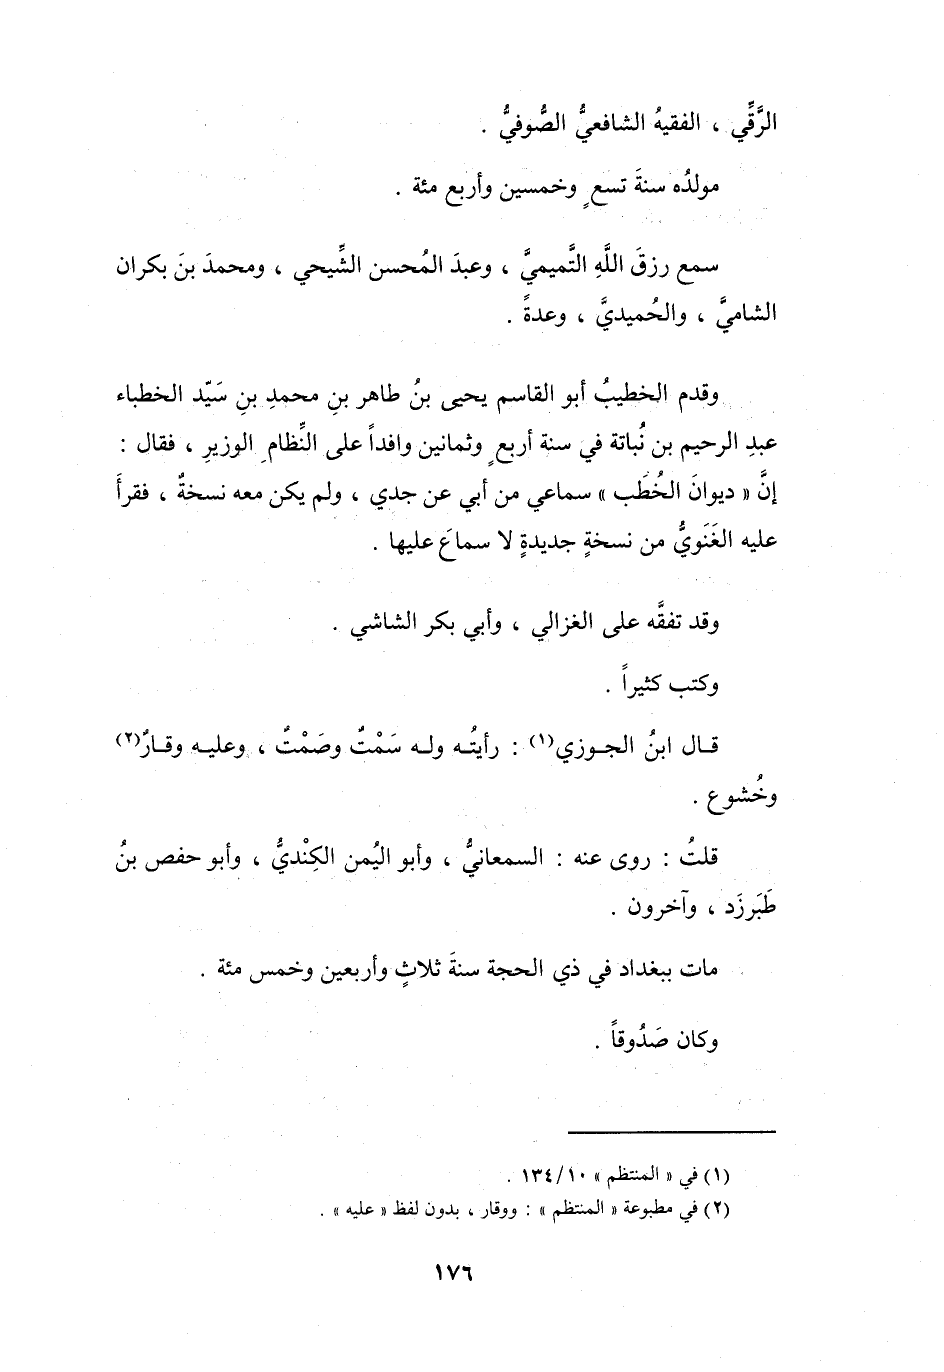 الرَّقِّي ، الفقيهُ الشافعيُّ الصُّوفيُّ .
مولدُه سنةَ تسعٍ وخمسين وأربع مئة .
سمع رزقَ اللَّهِ التَّميميَّ ، وعبدَ المُحسن الشِّيحي ، ومحمدَ بنَ بكران
الشاميَّ ، والحُميديَّ ، وعدةً .
وقدم الخطيبُ أبو القاسم يحيى بنُ طاهر بنِ محمدِ بنِ سَيّد الخطباء
عبدِ الرحيم بن نُباتة في سنة أربعٍ وثمانين وافداً على النِّظامِ الوزيرِ ، فقال :
إنَّ « ديوانَ الخُطَب » سماعي من أبي عن جدي ، ولم يكن معه نسخةٌ ، فقرأَ
عليه الغَنَويُّ من نسخةٍ جديدةٍ لا سماعَ عليها .
وقد تفقَّه على الغزالي ، وأبي بكر الشاشي .
وكتب كثيراً .
قـال ابنُ الجـوزي(١) : رأيتُـه ولـه سَمْتٌ وصَمْتٌ ، وعليـه وقـارٌ(٢)
وخُشوع .
قلتُ : روى عنه : السمعانيُّ ، وأبو اليُمن الكِنْديُّ ، وأبو حفص بنُ
طَبَرزَد ، وآخرون .
مات ببغداد في ذي الحجة سنةَ ثلاثٍ وأربعين وخمس مئة .
وكان صَدُوقاً .
(١) في « المنتظم » ١٣٤/١٠ .
(٢) في مطبوعة « المنتظم » : ووقار ، بدون لفظ « عليه » .
١٧٦